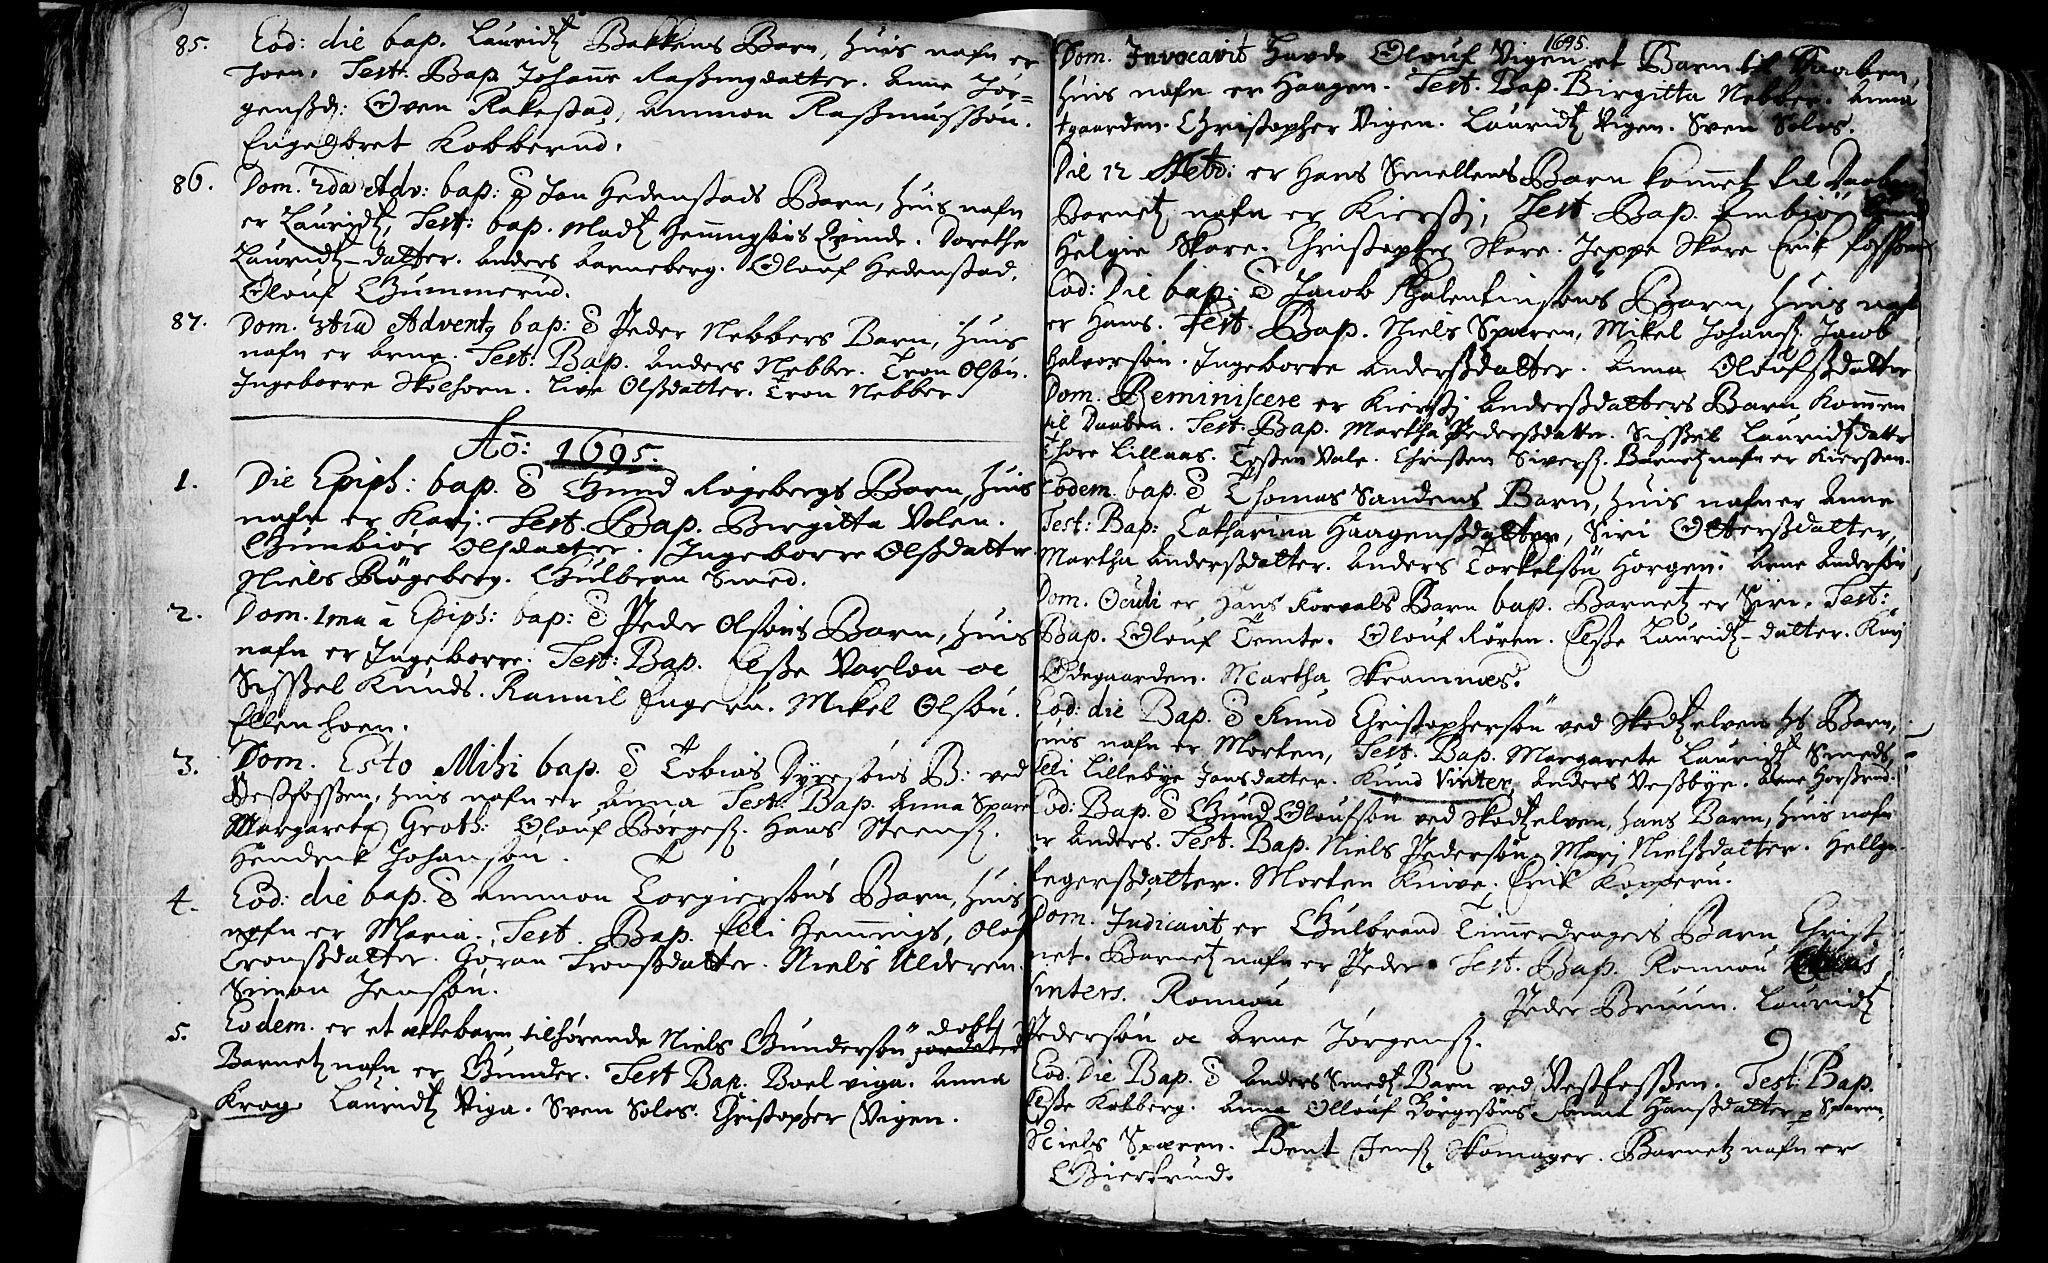 85. Eod: die bap. Lauridtz Bakkens Barn, huis nafn er
Joen. Test. Bap. Johanne Rasmusdatter. Anne Jör=
gensd: Oven Rakestad, Ammon Rasmusssøn.
Engelbret Kobberud.
86. Dom. 2da Adv: bap: Jon Hedenstads Barn, huis nafn
er Lauridtz, Test: bap. Madtz Hemmingsøns Qvinde. Dorethe
Lauridtz-datter. Anders Aarneberg. Olouf Hedenstad.
Olouf Gummerud.
87. Dom. 3tia Advent bap: Peder Nebbers Barn, huis
nafn er Arne. Test: Bap. Anders Nebber. Tron Olsøn.
Ingeborre Skolhorn. Live Olsdatter. Tron Nebber.
Aõ: 1695.
1. Die Epiph: bap. Gund Rögebergs Barn, huis
nafn er Karj. Test. Bap. Birgitta Volen.
Gunbiör Olsdatter. Ingeborre Olsdatter
Niels Rögeberg. Gulbran Smed.
2. Dom. 1ma à Epiph: bap: Peder Olsøns Barn, huis
nafn er Ingeborre. Test: Bap. Else Varlou oc
Sissel Knuds. Rannil Ingeru. Mikel Olsøn.
Ellen hoen.
3. Dom. Esto Mihi bap. Tobias Dyresøns B: ved
Vestfossen, huis nafn er Anna Test. Bap. Anna Spare
Margarete Groth: Olouf Börges. Hans Steens.
Hendrik Johansøn.
4. Eod: die bap. Ammon Torgiersøns Barn, huis
nafn er Maria. Test. Bap. Elli Hemmings, Olof
Tronsdatter. Göran Tronsdatter. Niels Ulderen.
Simon Jensøn.
5. Eodem. er et ektebarn tilhørende Niels Gundersøn döbt
Barnetz nafn er Gunder. Test Bap. Boel viga. Anna
Krog Lauridtz Viga. Sven Solos. Christopher Vigen.
1695.
Dom. Invocavit Hafde Olouf Vigen et Barn til Daaben,
huis nafn er Haagen. Test. Bap. Birgitta Nebber. Anna
tgaarden. Christopher Vigen. Lauridtz Vigen. Sven Solos.
Die 12 er Hans Snellens Barn kommet til Daaben
Barnetz nafn er Kiersti, Test Bap. Embiör
Helgie Skare. Christopher Skare. Jeppe Skare Erik
Eod: Die bap: Jacob Valentinsøns Barn, huis nafn
er Hans. Test. Bap. Niels Sparen, Mikel Johans. Jacob
Halvorsøn. Ingeborre Andersdatter. Anna Oloufsdatter
Dom. Reminiscere er Kiersti Andersdatters Barn kommen
til Daaben. Test: Bap. Martha Pedersdatter. Sissel Lauridtzdatter
Thore Lillaas. Tosten Vale. Christen Sivers. Barnetz nafn er Kiersten.
Eodem. bap. Thomas Sandens Barn, huis nafn er Anne
Test: Bap: Catharina Haagensdatter, Siri Ottersdatter,
Martha Andersdatter. Anders Torkelsøn Horgen. Arne Andersøn
Dom. Oculi er Hans Korvals Barn bap. Barnetz er Siri. Test:
Bap. Olouf Temte. Olouf Rören. Else Lauridtz-datter. Karj
Ödegaarden. Martha Skramnæs.
Eod: die Bap. Knud Christophersøn ved Skodtzelven hs Barn,
huis nafn er Morten, Test. Bap. Margarete Lauridtz Smeds,
Elli Lillebye Jonsdatter. Knud Vinter, Anders Vestbye. Arne Horsrud.
Eod: Bap. Gund Oloufsøn ved Skodtzelven, hans Barn, huis nafn
er Anders. Test. Bap. Niels Pedersøn, Marj Nielsdatter. Hellge
Segersdatter. Morten Knive. Erik Koppern.
Dom. Judicavit er Gulbrand Timmerdragers Barn Christ
net. Barnetz nafn er Peder. Test. Bap. Ronnou
Vinters. Ronnou Peder Bruun. Lauridtz
Pedersøn oc Arne Jörgens.
Eod: Die Bap. Anders Smedtz Barn ved Vestfossen. Test: Bap.
Else Kobberg. Anna Ollouf Börgesøns Anna Hansdatter p Sparen,
Niels Sparen. Bent Jens. Skomager. Barnetz nafn er
Giertrud.